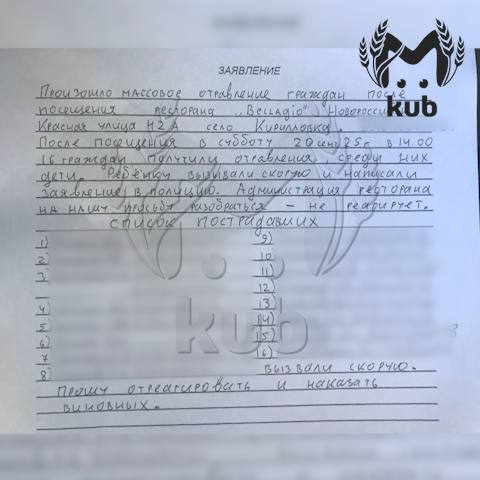 M
kub
ЗАЯВЛЕНИЕ
Произошло массовое отравление граждан после
посещения ресторана „Bellagio" Новоросси
Красная улица 42 А село Кирилловка.
После посещения в субботу 20 сен 25г. в 14.00
16 граждан получили отравления, среди них
дети. Ребёнку вызывали скорую и написали
заявление в полицию. Администрация ресторана
на нашу просьбу разобраться – не реагирует.
СПИСОК ПОСТРАДАВШИХ
1) 9)
2 10
3 11)
12)
4 13
5 14)
6 15)
7 16)
8)
вызвали скорую.
Прошу отреагировать и наказать
виновных.
kub